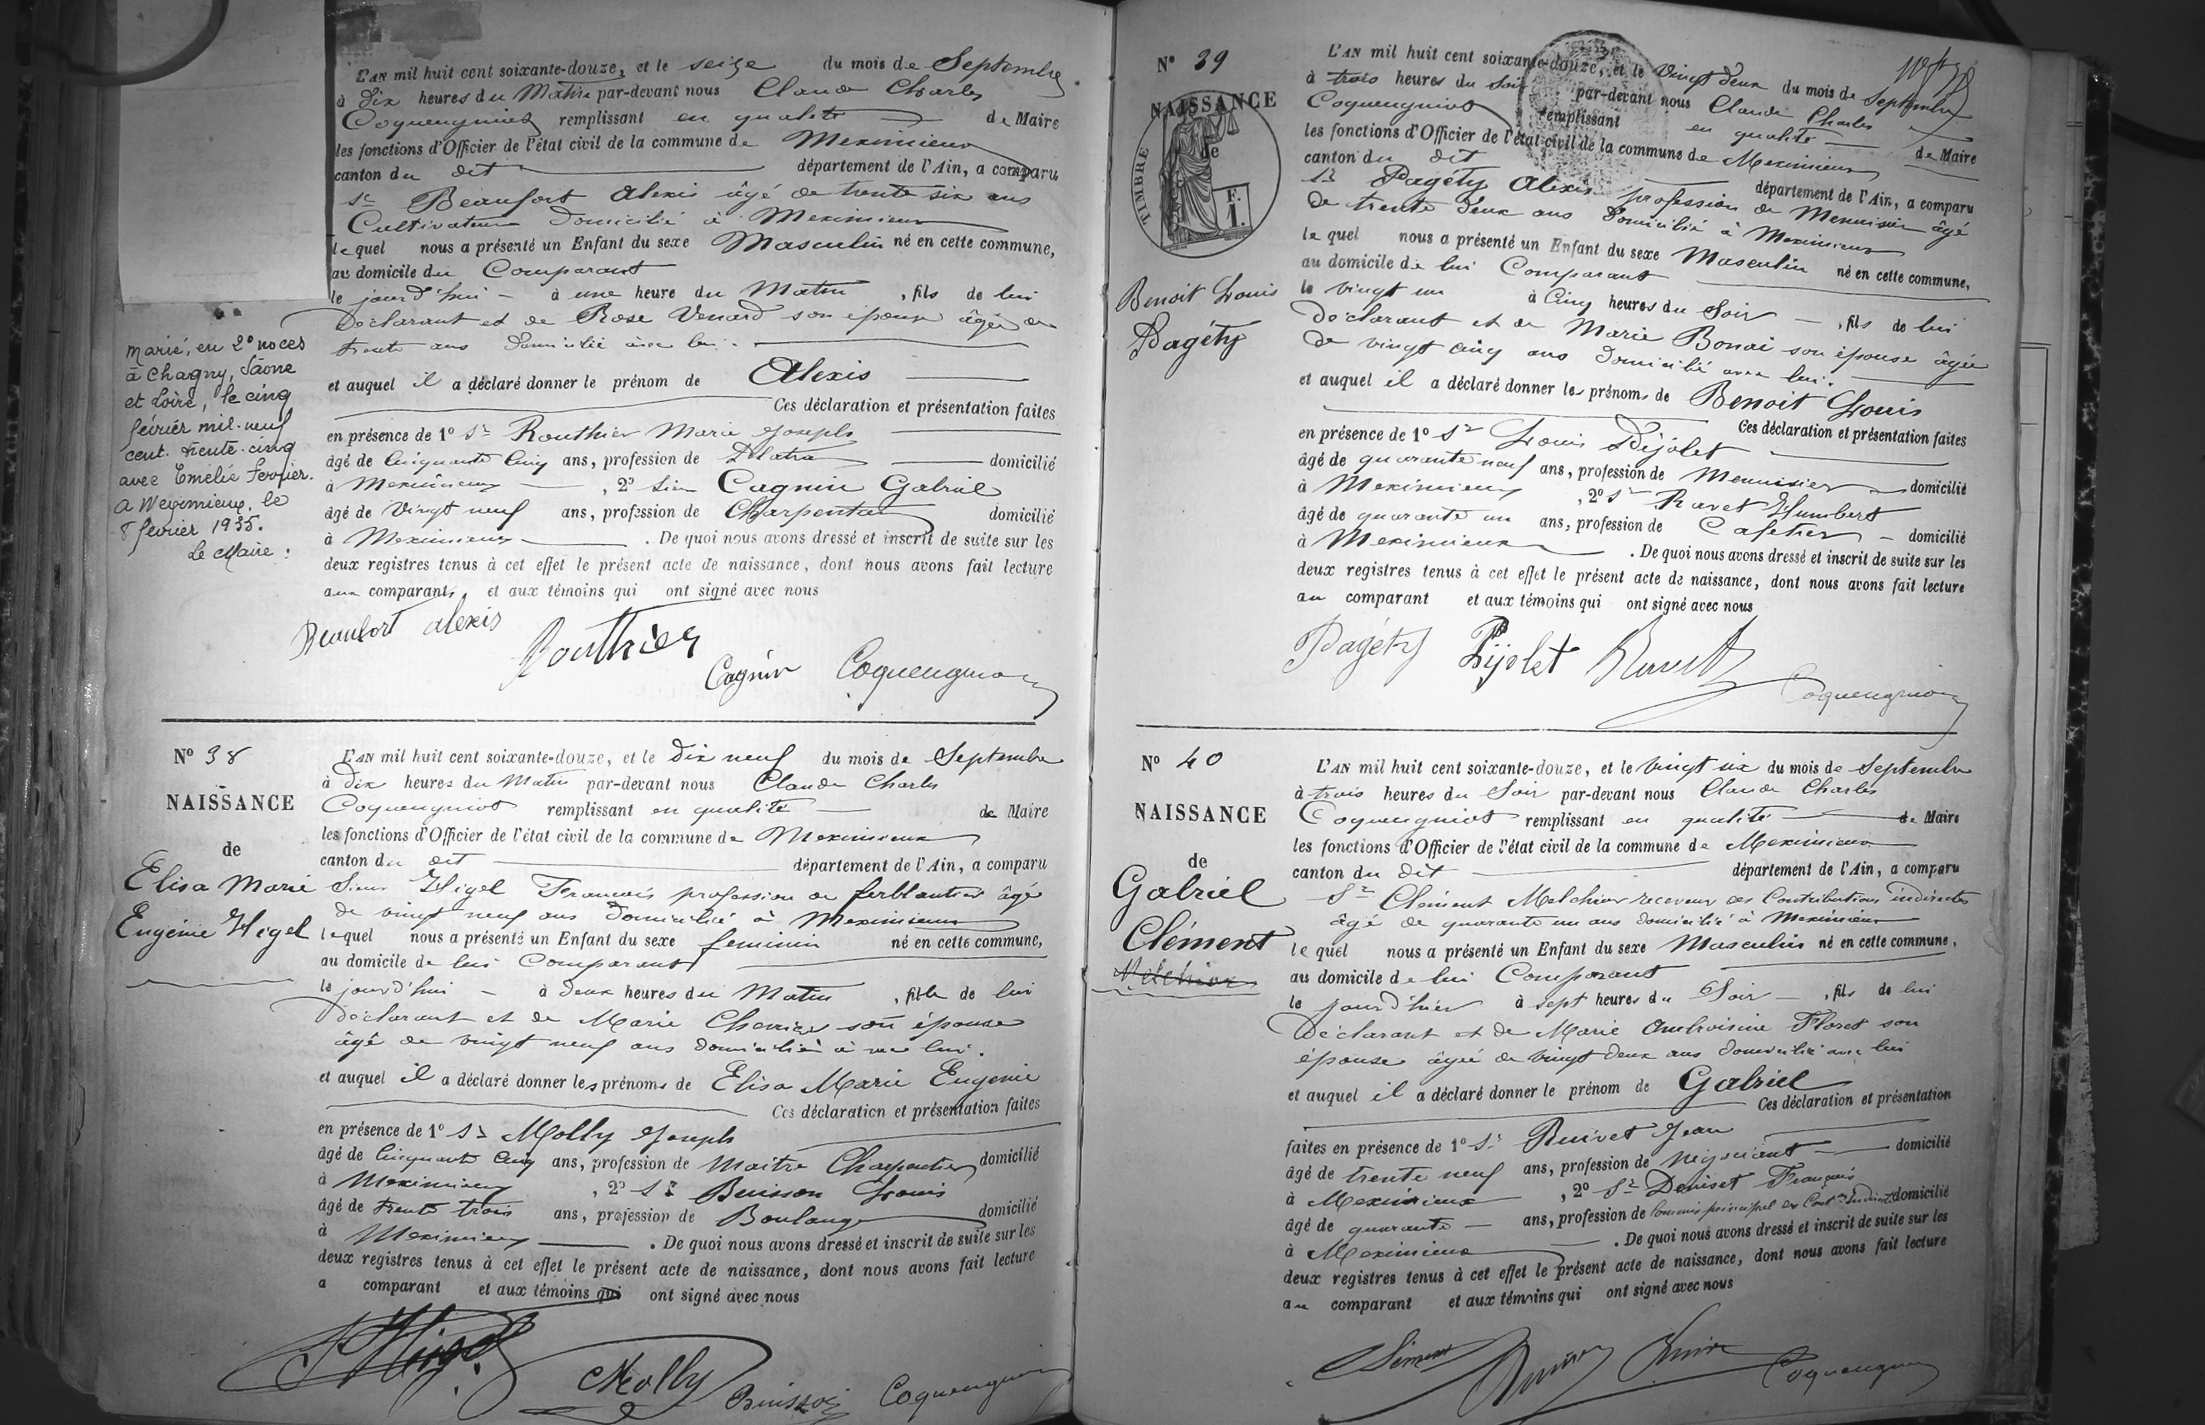 L'AN mil huit cent soixante-douze, et le seize du mois de Septembre
à Dix heures du Matin par-devant nous Claude Charles
Coquenguiot remplissant en qualité de Maire
les fonctions d'Officier de l'état civil de la commune de Meximieux
canton du dit département de l'Ain, a comparu
Sr Beaufort Alexis âgé de trente six ans
Cultivateur Domicilié à Meximieux
lequel nous a présenté un Enfant du sexe Masculin né en cette commune,
au domicile du Comparant
le jourd'hui à une heure du Matin, fils de lui
Déclarant et de Rose Venard son épouse âgée de
trente ans Domicilié avec lui.
et auquel il a déclaré donner le prénom de Alexis
Ces déclaration et présentation faites
en présence de 1º Sr Routhier Marie Joseph
âgé de Cinquante Cinq ans, profession de domicilié
à Meximieux, 2º Sieur Cagnin Gabriel
âgé de Vingt neuf ans, profession de Charpentier domicilié
à Meximieux. De quoi nous avons dressé et inscrit de suite sur les
deux registres tenus à cet effet le présent acte de naissance, dont nous avons fait lecture
aux comparants, et aux témoins qui ont signé avec nous
Beaufort alexis
Routhier
Cagnin Coquenguiot
Marié, en 2º noces
à Chagny, Saône
et Loire, le cinq
février mil-neuf
cent-trente-cinq
avec Emélie Ferrier.
A Meximieux, le
8 février 1935.
Le Maire :
Nº 38
NAISSANCE
de
Elisa Marie
Eugénie Higel
L'AN mil huit cent soixante-douze, et le Dix neuf du mois de Septembre
à Dix heures du Matin par-devant nous Claude Charles
Coquenguiot remplissant en qualité de Maire
les fonctions d'Officier de l'état civil de la commune de Meximieux
canton du dit département de l'Ain, a comparu
Sieur Higel François profession de ferblantier âgé
de vingt neuf ans Domicilié à Meximieux
lequel nous a présenté un Enfant du sexe feminin né en cette commune,
au domicile de lui Comparant
le jourd'hui à Deux heures du Matin, fille de lui
Déclarant et de Marie son épouse
âgé de vingt neuf ans domicilié avec lui.
et auquel il a déclaré donner les prénoms de Elisa Marie Eugenie
Ces déclaration et présentation faites
en présence de 1º Sr Molly Joseph
âgé de Cinquante Cinq ans, profession de Maitre Charpentier domicilié
à Meximieux, 2º Sr Buisson Louis
âgé de Trente trois ans, profession de Boulanger domicilié
à Meximieux. De quoi nous avons dressé et inscrit de suite sur les
deux registres tenus à cet effet le présent acte de naissance, dont nous avons fait lecture
a comparant et aux témoins qui ont signé avec nous
F Higel
Molly Buisson Coquenguiot
Nº 39
NAISSANCE
de
TIMBRE
F.
1.
Benoit Louis
Pagéty
L'AN mil huit cent soixante-douze, et le Vingt Deux du mois de Septembre
à trois heures du Soir par-devant nous Claude Charles
Coquenguiot remplissant en qualité de Maire
les fonctions d'Officier de l'état civil de la commune de Meximieux
canton du dit département de l'Ain, a comparu
Sr Pagéty Alexis profession de Menuisier âgé
De trente Deux ans Domicilié à Meximieux
lequel nous a présenté un Enfant du sexe Masculin né en cette commune,
au domicile de lui Comparant
le vingt un à Cinq heures du Soir, fils de lui
Déclarant et de Marie Bonai son épouse âgée
De vingt cinq ans Domicilié avec lui.
et auquel il a déclaré donner les prénoms de Benoit Louis
Ces déclaration et présentation faites
en présence de 1º Sr Louis Dijolet
âgé de quarante neuf ans, profession de Menuisier domicilié
à Meximieux, 2º Sr Ravet Humbert
âgé de quarante un ans, profession de Cafetier domicilié
à Meximieux. De quoi nous avons dressé et inscrit de suite sur les
deux registres tenus à cet effet le présent acte de naissance, dont nous avons fait lecture
au comparant et aux témoins qui ont signé avec nous
Pagéty Dijolet Ravet
Coquenguiot
Nº 40
NAISSANCE
de
Gabriel
Clément
Melchior
L'AN mil huit cent soixante-douze, et le vingt six du mois de Septembre
à trois heures du Soir par-devant nous Claude Charles
Coquenguiot remplissant en qualité de Maire
les fonctions d'Officier de l'état civil de la commune de Meximieux
canton du dit département de l'Ain, a comparu
Sr Clément Melchior receveur des Contributions indirectes
âgé de quarante un ans domicilié à Meximieux
lequel nous a présenté un Enfant du sexe Masculin né en cette commune,
au domicile de lui Comparant
le jour d'hier à sept heures du Soir, fils de lui
Déclarant et de Marie Ambroisine Floret son
épouse âgée de vingt deux ans domicilié avec lui
et auquel il a déclaré donner le prénom de Gabriel
Ces déclaration et présentation
faites en présence de 1º Sr Jean
âgé de trente neuf ans, profession de négociant domicilié
à Meximieux, 2º Sr Deniset François
âgé de quarante ans, profession de Commis principal des Contons Indirectes domicilié
à Meximieux. De quoi nous avons dressé et inscrit de suite sur les
deux registres tenus à cet effet le présent acte de naissance, dont nous avons fait lecture
au comparant et aux témoins qui ont signé avec nous
Clément
Coquenguiot